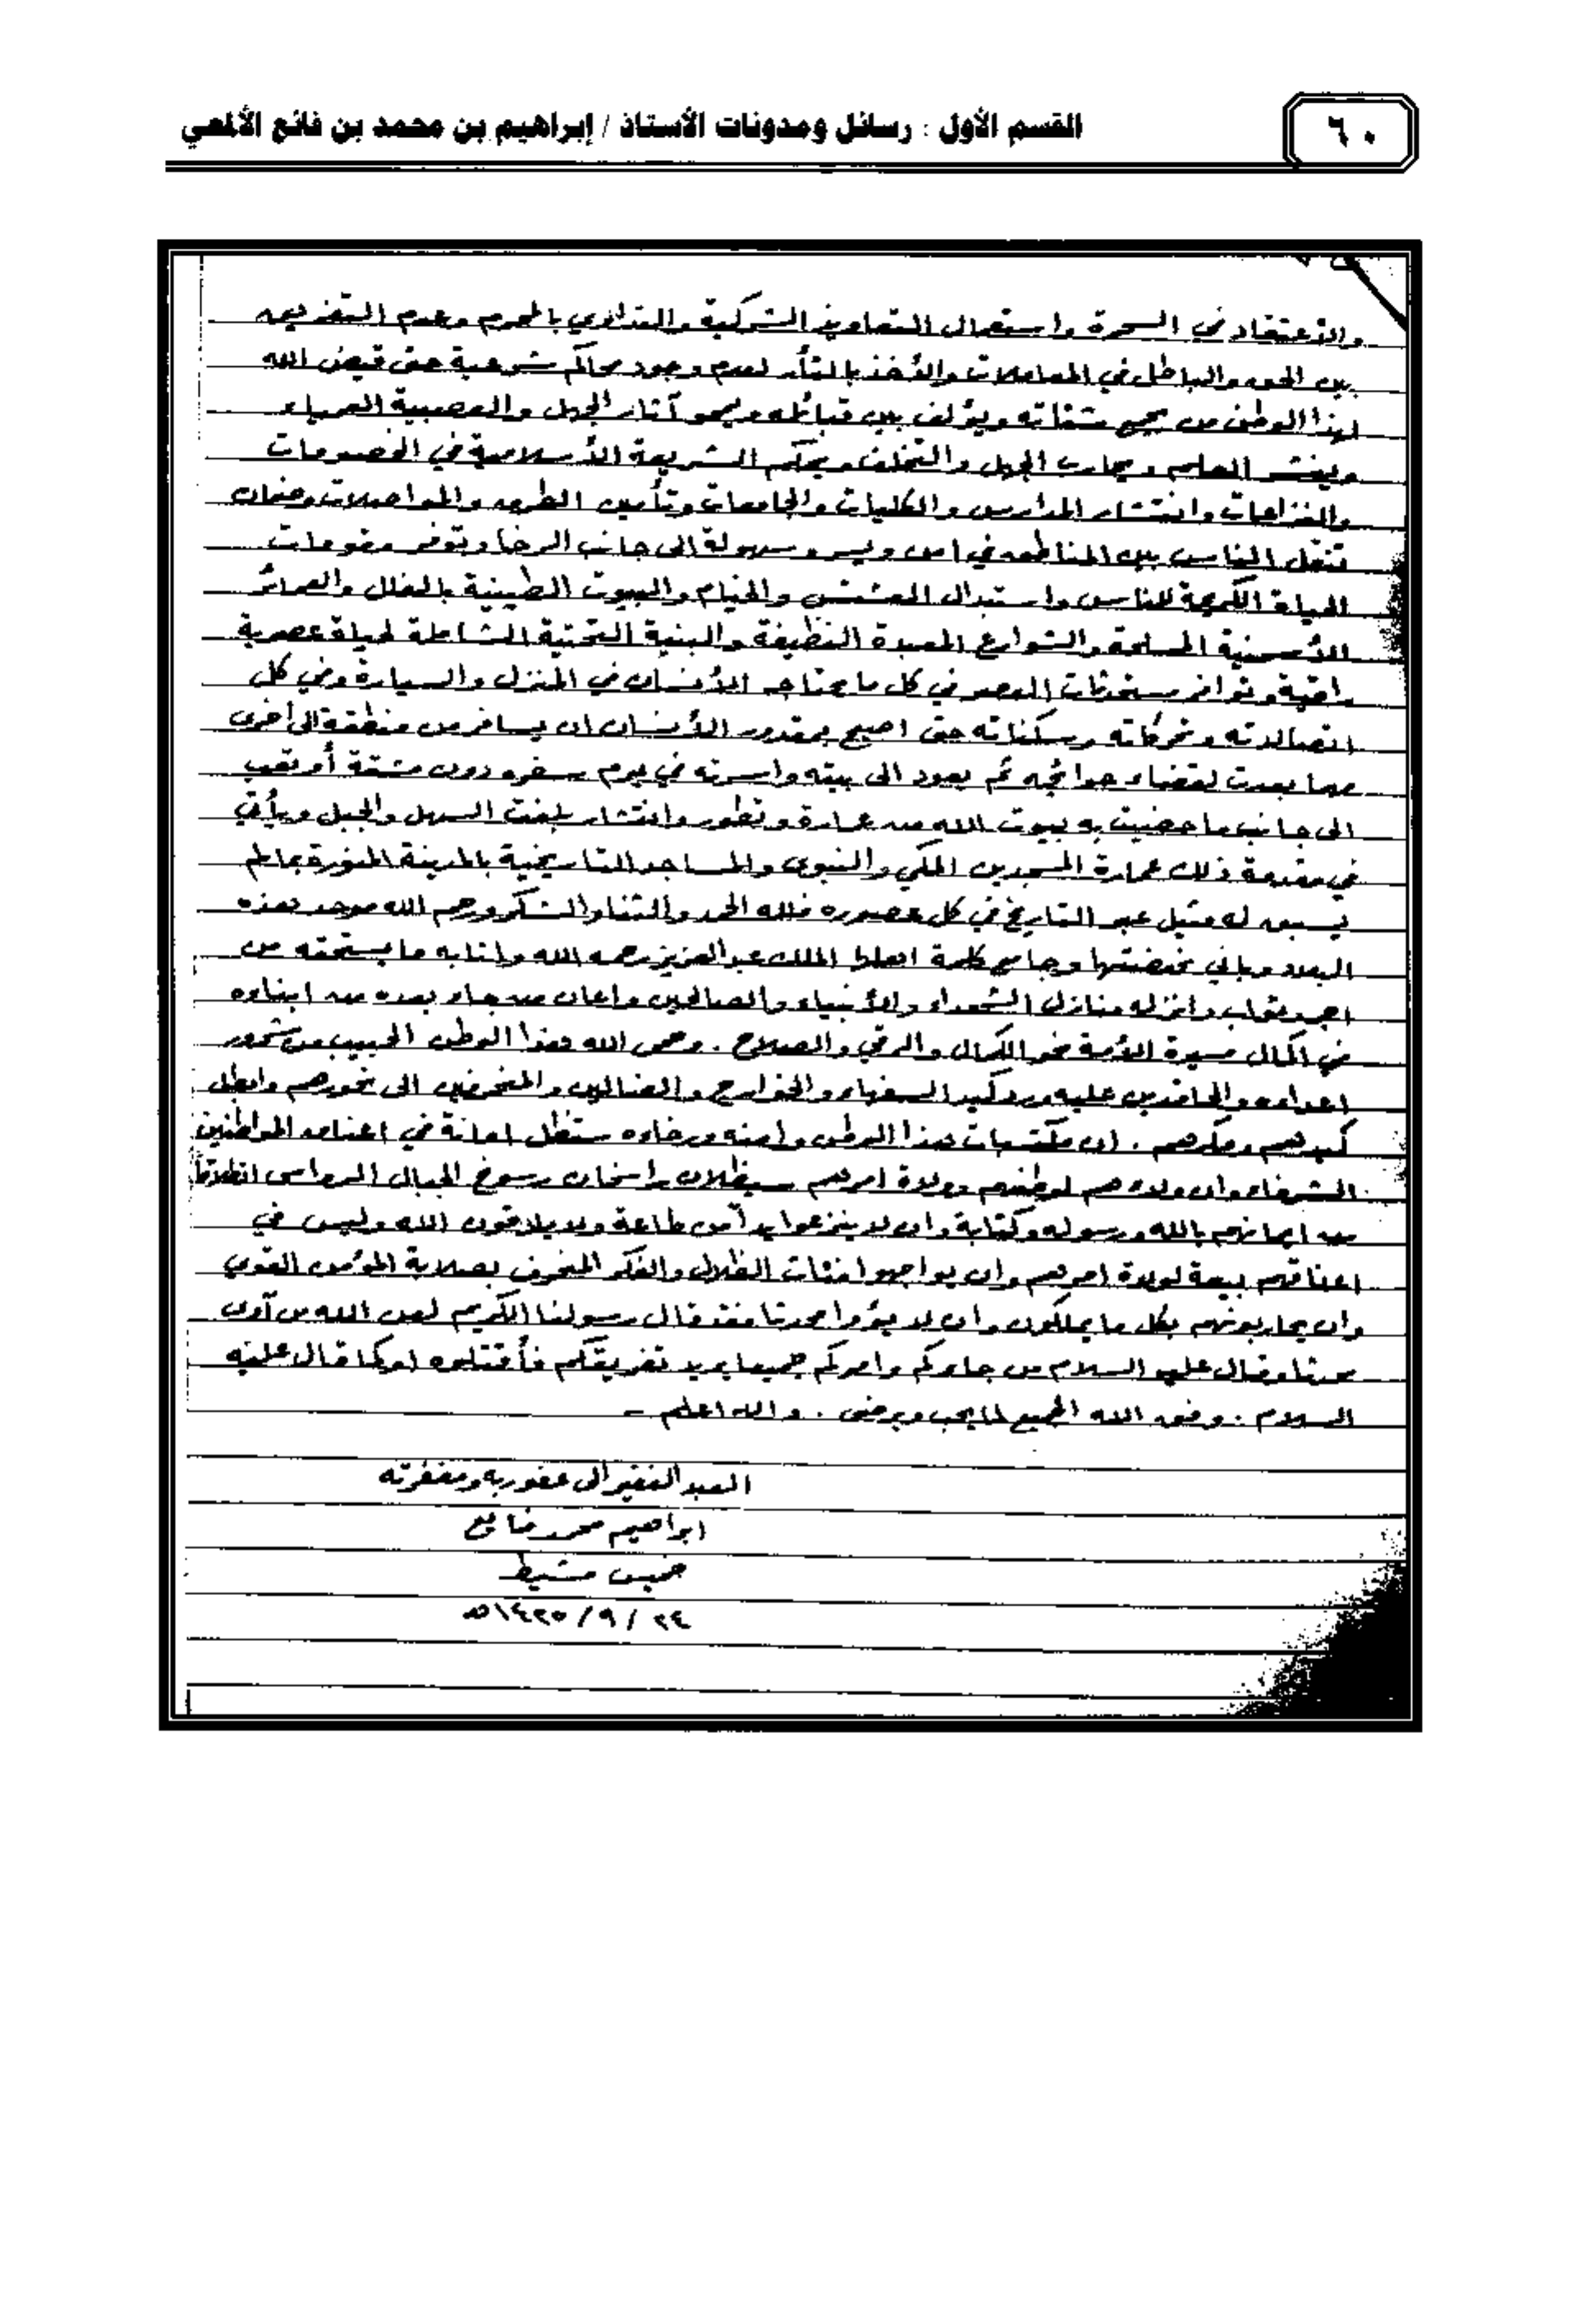 ٦٠
القسم الأول : رسائل ومدونات الأستاذ / إبراهيم بن محمد بن فائع الألمعي
والاعتقاد في السحرة واستعمال التعاويذ الشركية والتداوي بالمحرم وعدم التفريق
بين الحق والباطل في المعاملات والأخذ بالثأر لعدم وجود محاكم شرعية حتى قيض الله
لهذا الوطن من يجمع شتاته ويؤلف بين قبائله ويمحو آثار الجهل والعصبية العمياء
وينشر العلم ويحارب الجهل والتخلف ويحكم الشريعة الأسلامية في الخصومات
والنزاعات وانتشار المدارس والكليات والجامعات وتأمين الطرق والمواصلات وضمان
تنقل الناس بين المناطق في امن ويسر وسهولة الى جانب الرخاء وتوفر مقومات
الحياة الكريمة للناس واستبدال العشش والخيام والبيوت الطينية بالفلل والعمائر
الأسمنتية المسلحة والشوارع المعبدة النظيفة والبنية التحتية الشاملة لحياة عصرية
راقية وتوافر مستحدثات العصر في كل ما يحتاجه الأنسان في المنزل والسيارة وفي كل
اتصالاته وتحركاته وسكناته حتى اصبح بمقدور الأنسان ان يسافر من منطقة الى أخرى
مهما بعدت لقضاء حوائجه ثم يعود الى بيته واسرته في يوم سفره دون مشقة أو تعب
الى جانب ما حضيت به بيوت الله من عمارة وتطور وانتشار بلغت السهل والجبل ويأتي
في مقدمة ذلك عمارة المسجدين المكي والنبوي والمساجد التاريخية بالمدينة المنورة بما لم
يسبق له مثيل عبر التاريخ في كل عصوره فلله الحمد والثناء والشكر ورحم الله موحد هذه
البلاد وباني نهضتها وجامع كلمة اهلها الملك عبدالعزيز رحمه الله واثابه ما يستحقه من
اجر وثواب وانزله منازل الشهداء والأنبياء والصالحين واعان من جاء بعده من ابناءه
في اكمال مسيرة الأمة نحو الكمال والرقي والصلاح . وحمى الله هذا الوطن الحبيب من شرور
اعداءه والحاقدين عليه ورد كيد السفهاء والخوارج والضالين والمنحرفين الى نحورهم وابطل
كيدهم ومكرهم . ان مكتسبات هذا الوطن وامنه ورخاءه ستظل امانة في اعناق المواطنين
الشرفاء وان ولاءهم لوطنهم وولاة امرهم سيظلان راسخان رسوخ الجبال الرواسي انطلاقاً
من ايمانهم بالله ورسوله وكتابة وان لا ينزعوا يداً من طاعة ولا يلاقون الله وليس في
اعناقهم بيعة لولاة امرهم وان يواجهوا فئات الظلال والفكر المنحرف بصلابة المؤمن القوي
وان يحاربونهم بكل ما يملكون وان لا يؤوا محدثا فقد قال رسولنا الكريم لعن الله من آوى
محدثا وقال عليه السلام من جاءكم وامركم جميعا يريد تفريقكم فأقتلوه او كما قال عليه
السلام . وفق الله الجميع لما يحب ويرضى . والله اعلم -
العبد الفقير الى عفو ربه ومغفرته
ابراهيم محمد فائع
خميس مشيط
٢٤ / ٩ / ١٤٢٥هـ